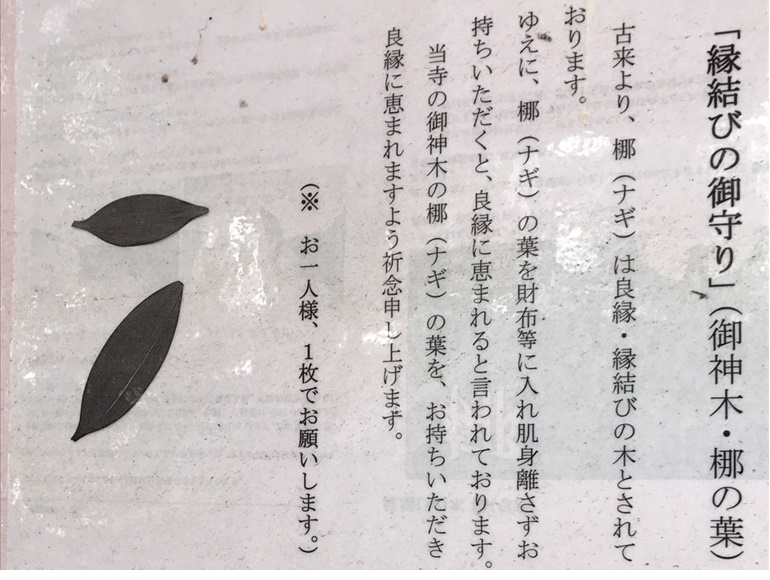 「縁結びの御守り」（御神木・梛の葉）
古来より、梛（ナギ）は良縁・縁結びの木とされて
おります。
ゆえに、梛（ナギ）の葉を財布等に入れ肌身離さずお
持ちいただくと、良縁に恵まれると言われております。
当寺の御神木の梛（ナギ）の葉を、お持ちいただき
良縁に恵まれますよう祈念申し上げます。
（※　お一人様、１枚でお願いします。）